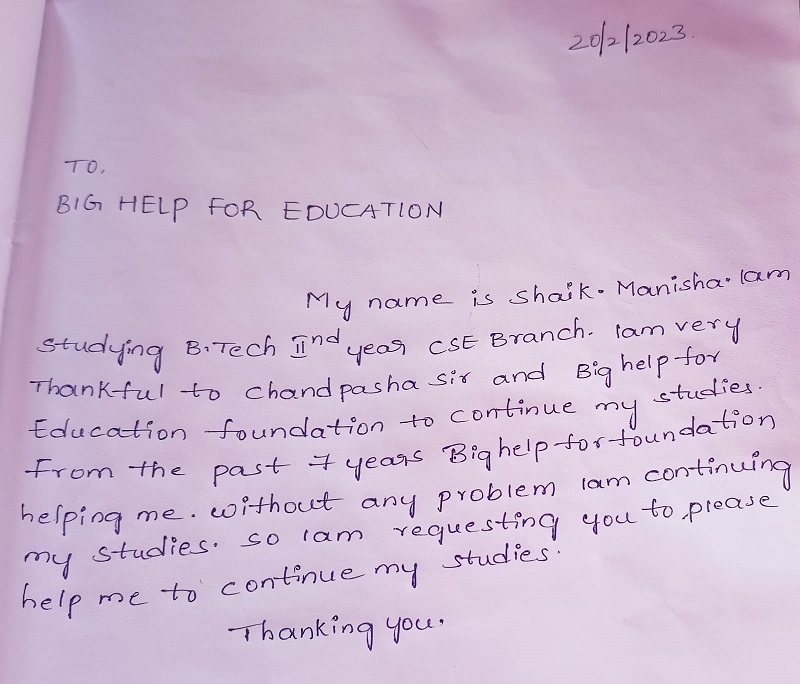 20/2/2023.
TO,
BIG HELP FOR EDUCATION
My name is Shaik. Manisha. Iam
studying B.Tech IInd year CSE Branch. Iam very
Thankful to chand pasha sir and Big help for
Education foundation to continue my studies.
From the past 7 years Big help for foundation
helping me. without any problem Iam continuing
my studies. so Iam requesting you to please
help me to continue my studies.
Thanking you.